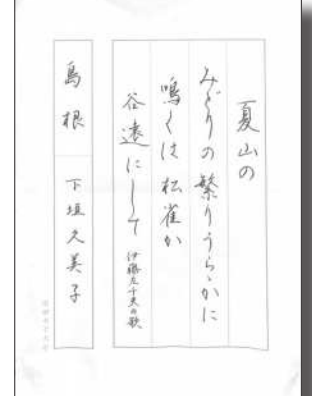 夏山の
みどりの繁りうらゝかに
鳴くは松雀か
谷遠にして 伊藤左千夫の歌
島根 下垣久美子